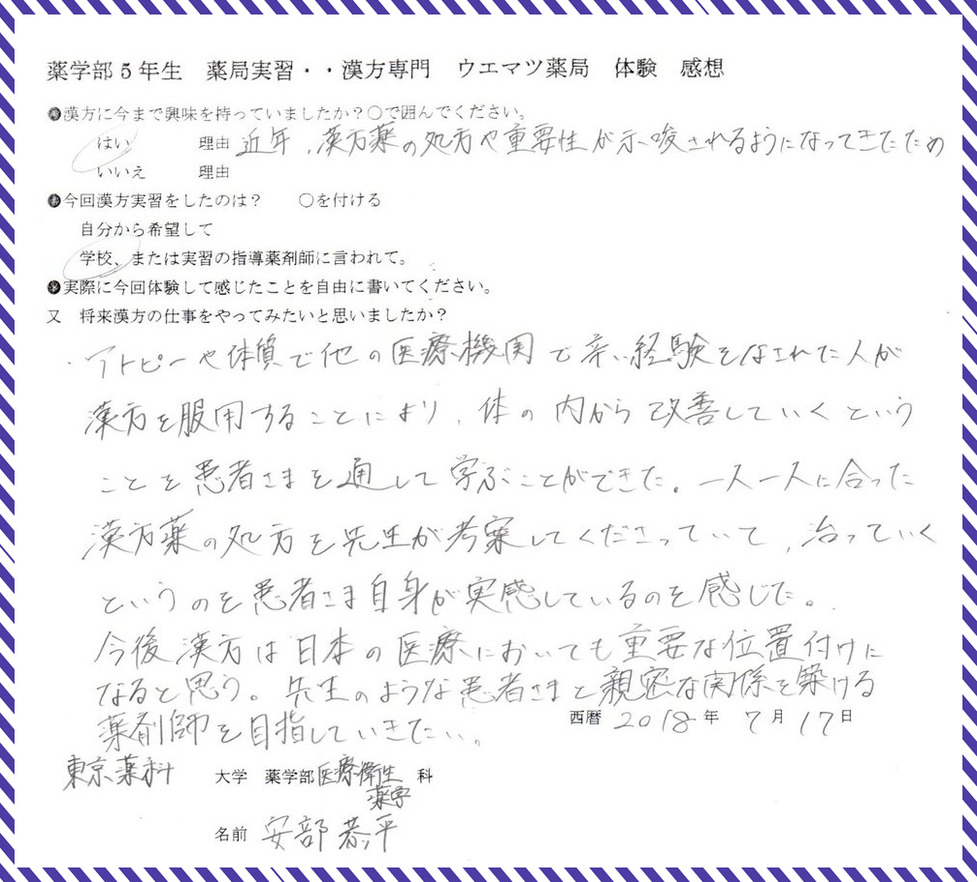 薬学部5年生 薬局実習・・漢方専門 ウエマツ薬局 体験 感想
●漢方に今まで興味を持っていましたか?○で囲んでください。
はい 理由 近年、漢方薬の処方や重要性が示唆されるようになってきたため
いいえ 理由
●今回漢方実習をしたのは? ○を付ける
自分から希望して
学校、または実習の指導薬剤師に言われて。
●実際に今回体験して感じたことを自由に書いてください。
又 将来漢方の仕事をやってみたいと思いましたか?
・アトピーや体質で他の医療機関で辛い経験をなされた人が
漢方を服用することにより、体の内から改善していくという
ことを患者さまを通して学ぶことができた。一人一人に合った
漢方薬の処方を先生が考案してくださっていて、治っていく
というのを患者さま自身が実感しているのを感じた。
今後漢方は日本の医療においても重要な位置付けに
なると思う。先生のような患者さまと親密な関係を築ける
薬剤師を目指していきたい。
西暦 2018年 7月 17日
東京薬科 大学 薬学部 医療衛生 科
薬学
名前 安部恭平